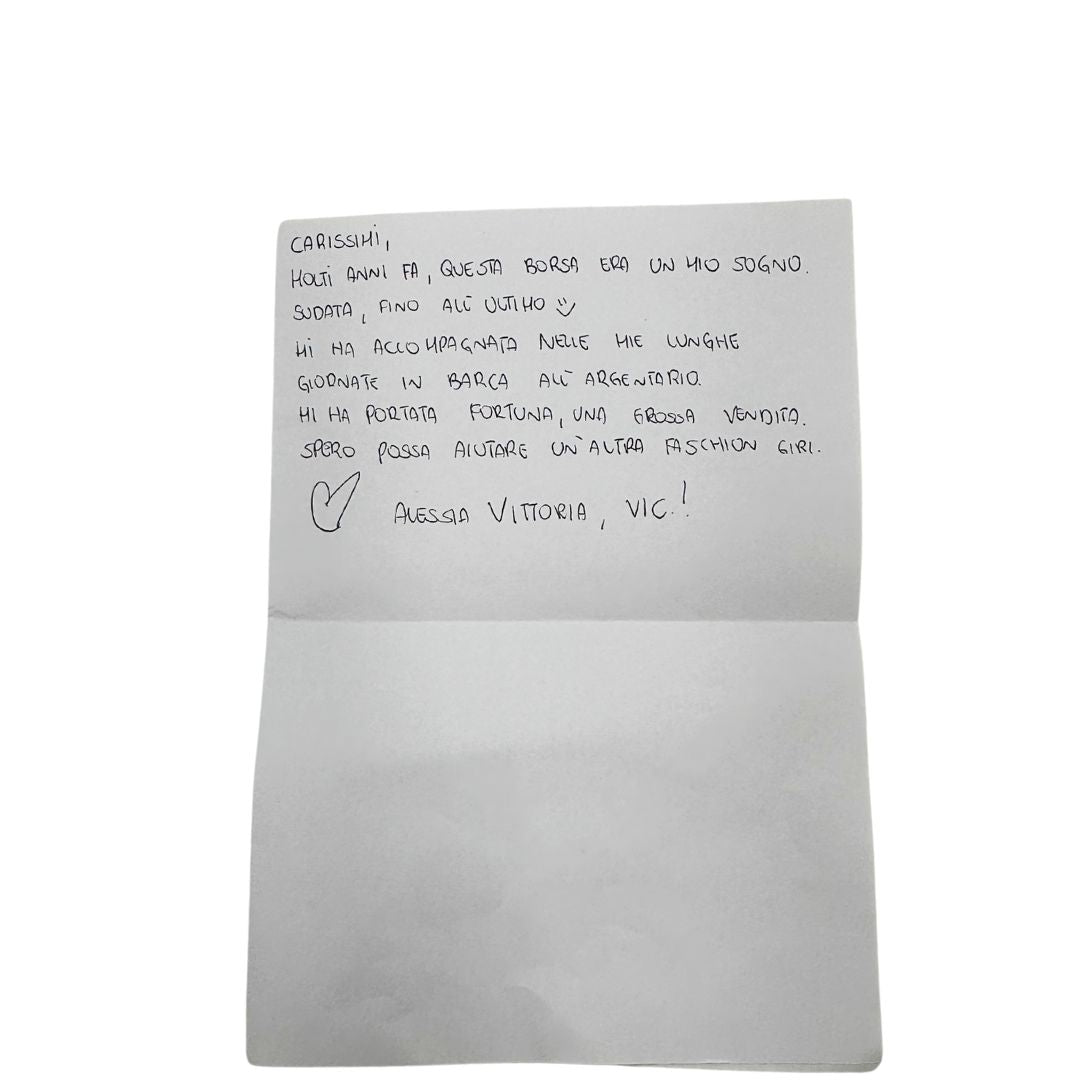 CARISSIMI,
MOLTI ANNI FA, QUESTA BORSA ERA UN MIO SOGNO.
SUDATA, FINO ALL'ULTIMO
MI HA ACCOMPAGNATA NELLE MIE LUNGHE
GIORNATE IN BARCA ALL'ARGENTARIO.
MI HA PORTATA FORTUNA, UNA GROSSA VENDITA.
SPERO POSSA AIUTARE UN'ALTRA FASCHION GIRL.
ALESSIA VITTORIA, VIC.!